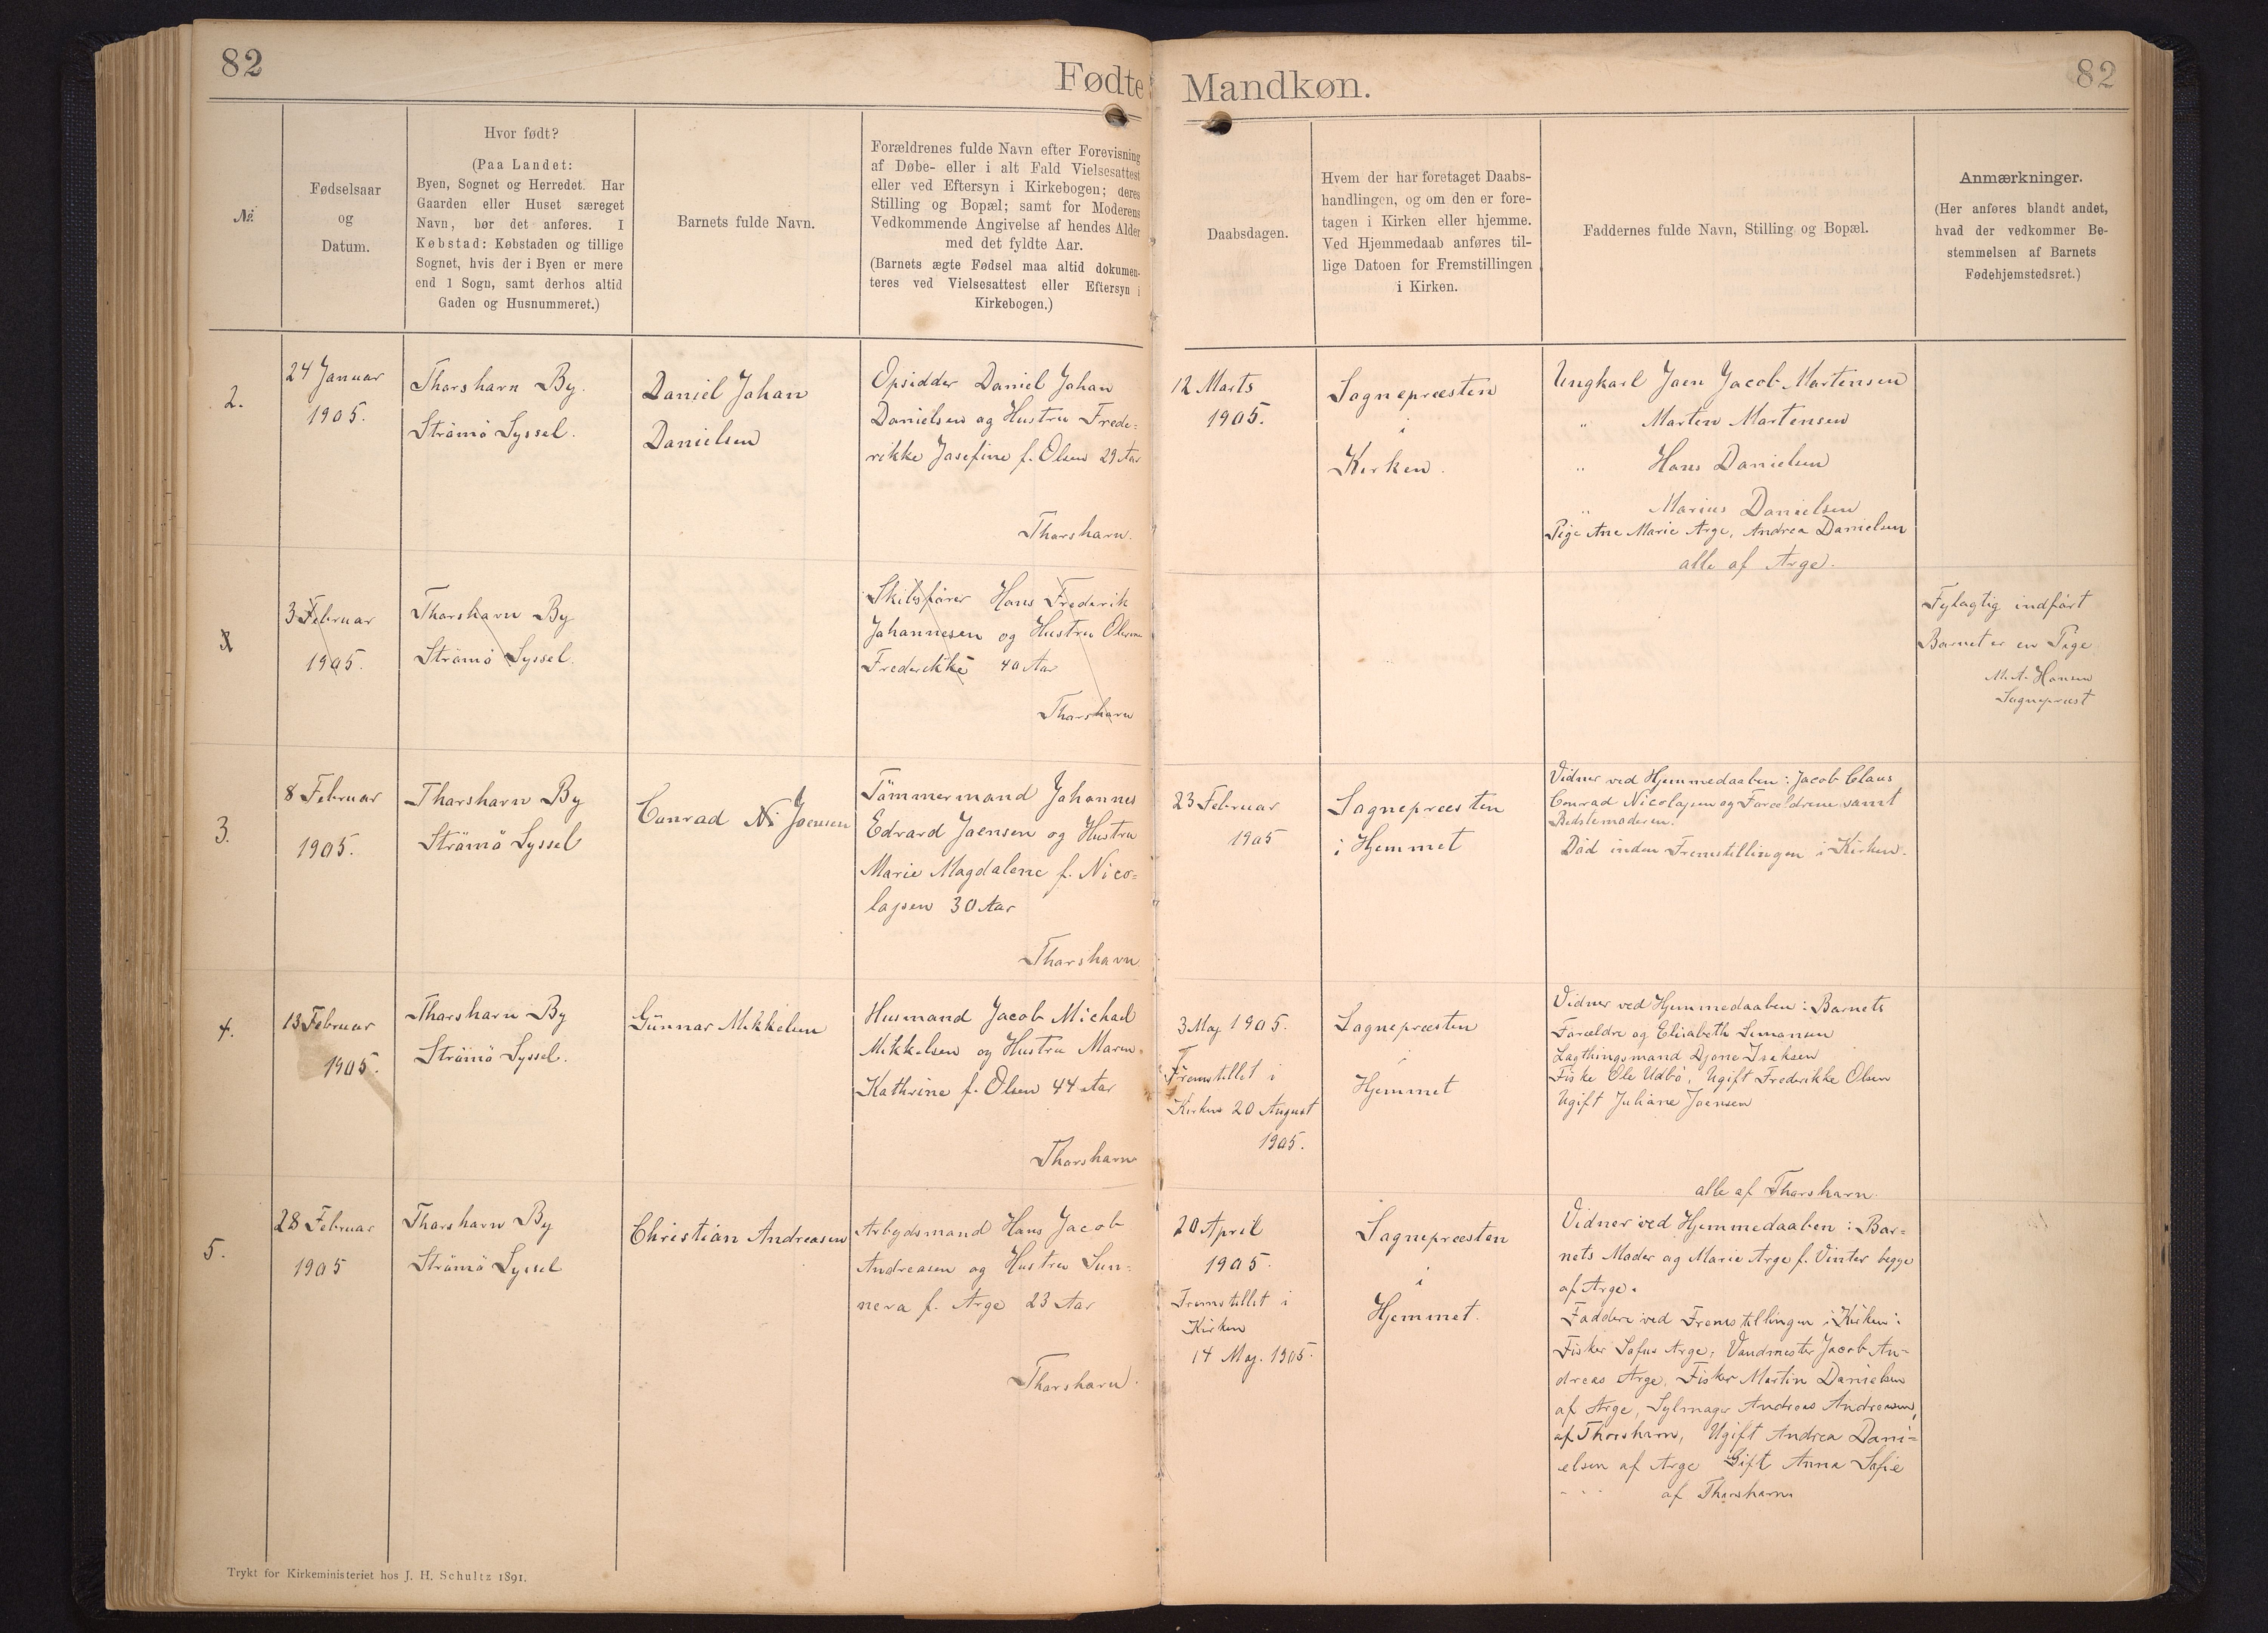 82
Fødte
Mandkøn.
82
№
Fødselsaar
og
Datum.
Hvor født?
(Paa Landet:
Byen, Sognet og Herredet. Har
Gaarden eller Huset særeget
Navn, bør det anføres. I
Købstad: Købstaden og tillige
Sognet, hvis der i Byen er mere
end 1 Sogn, samt derhos altid
Gaden og Husnummeret.)
Barnets fulde Navn.
Forældrenes fulde Navn efter Forevisning
af Døbe- eller i alt Fald Vielsesattest
eller ved Eftersyn i Kirkebogen; deres
Stilling og Bopæl; samt for Moderens
Vedkommende Angivelse af hendes Alder
med det fyldte Aar.
(Barnets ægte Fødsel maa altid dokumen-
teres ved Vielsesattest eller Eftersyn i
Kirkebogen.)
Daabsdagen.
Hvem der har foretaget Daabs-
handlingen, og om den er fore-
tagen i Kirken eller hjemme.
Ved Hjemmedaab anføres til-
lige Datoen for Fremstillingen
i Kirken.
Faddernes fulde Navn, Stilling og Bopæl.
Anmærkninger.
(Her anføres blandt andet,
hvad der vedkommer Be-
stemmelsen af Barnets
Fødehjemstedsret.)
2.
24 Januar
1905.
Thorshavn By.
Strömö Syssel.
Daniel Johan
Danielsen
Opsidder Daniel Johan
Danielsen og Hustru Frede=
rikke Josefine f. Olsen 29 Aar
Thorshavn.
12 Marts
1905.
Sognepræsten
i
Kirken.
Ungkarl Joen Jacob Martensen
" Morten Mortensen
" Hans Danielsen
" Marius Danielsen
Pige Ane Marie Arge, Andrea Danielsen
alle af Arge.
3
3 Februar
1905.
Thorshavn By
Strömö Syssel.
Skibsfører Hans Frederik
Johannesen og Hustru
Frederikke 40 Aar
Thorshavn
Fejlagtig indført
Barnet er en Pige
M. A. Hansen
Sognepræst
3.
8 Februar
1905.
Thorshavn By
Strömö Syssel
Conrad Ni Joensen
Tömmermand Johannes
Edvard Joensen og Hustru
Marie Magdalene f. Nico=
lajsen 30 Aar
Thorshavn
23 Februar
1905
Sognepræsten
i Hjemmet
Vidner ved Hjemmedaaben: Jacob Claus
Conrad Nicolajsen og Forældrene samt
Bedstemoderen.
Död inden Fremstillingen i Kirken.
4.
13 Februar
1905.
Thorshavn By
Strömö Syssel.
Gunnar Mikkelsen
Husmand Jacob Michael
Mikkelsen og Hustru Maren
Kathrine f. Olsen 44 Aar
Thorshavn
3 Maj 1905.
Fremstillet i
Kirken 20 August
1905.
Sognepræsten
i
Hjemmet
Vidner ved Hjemmedaaben: Barnets
Forældre og Elisabeth Simonsen
Lagthingsmand Djone Isaksen
Fisker Ole Udbö, Ugift Frederikke Olsen
Ugift Juliane Joensen
alle af Thorshavn.
5.
28 Februar
1905
Thorshavn By
Strömö Syssel
Christian Andreasen
Arbejdsmand Hans Jacob
Andreasen og Hustru Sun=
neva f. Arge 23 Aar
Thorshavn.
20 April
1905.
Fremstillet i
Kirken
14 Maj. 1905.
Sognepræsten
i
Hjemmet.
Vidner ved Hjemmedaaben: Bar=
nets Moder og Marie Arge f. Vinter begge
af Arge.
Faddere ved Fremstillingen i Kirken:
Fisker Sofus Arge, Vandmester Jacob An-
dreas Arge, Fisker Martin Danielsen
af Arge, Andreas Andreasen,
af Thorshavn, Ugift Andrea Dani=
elsen af Arge Gift Anna Sofie
af Thorshavn
Trykt for Kirkeministeriet hos J. H. Schultz 1891.